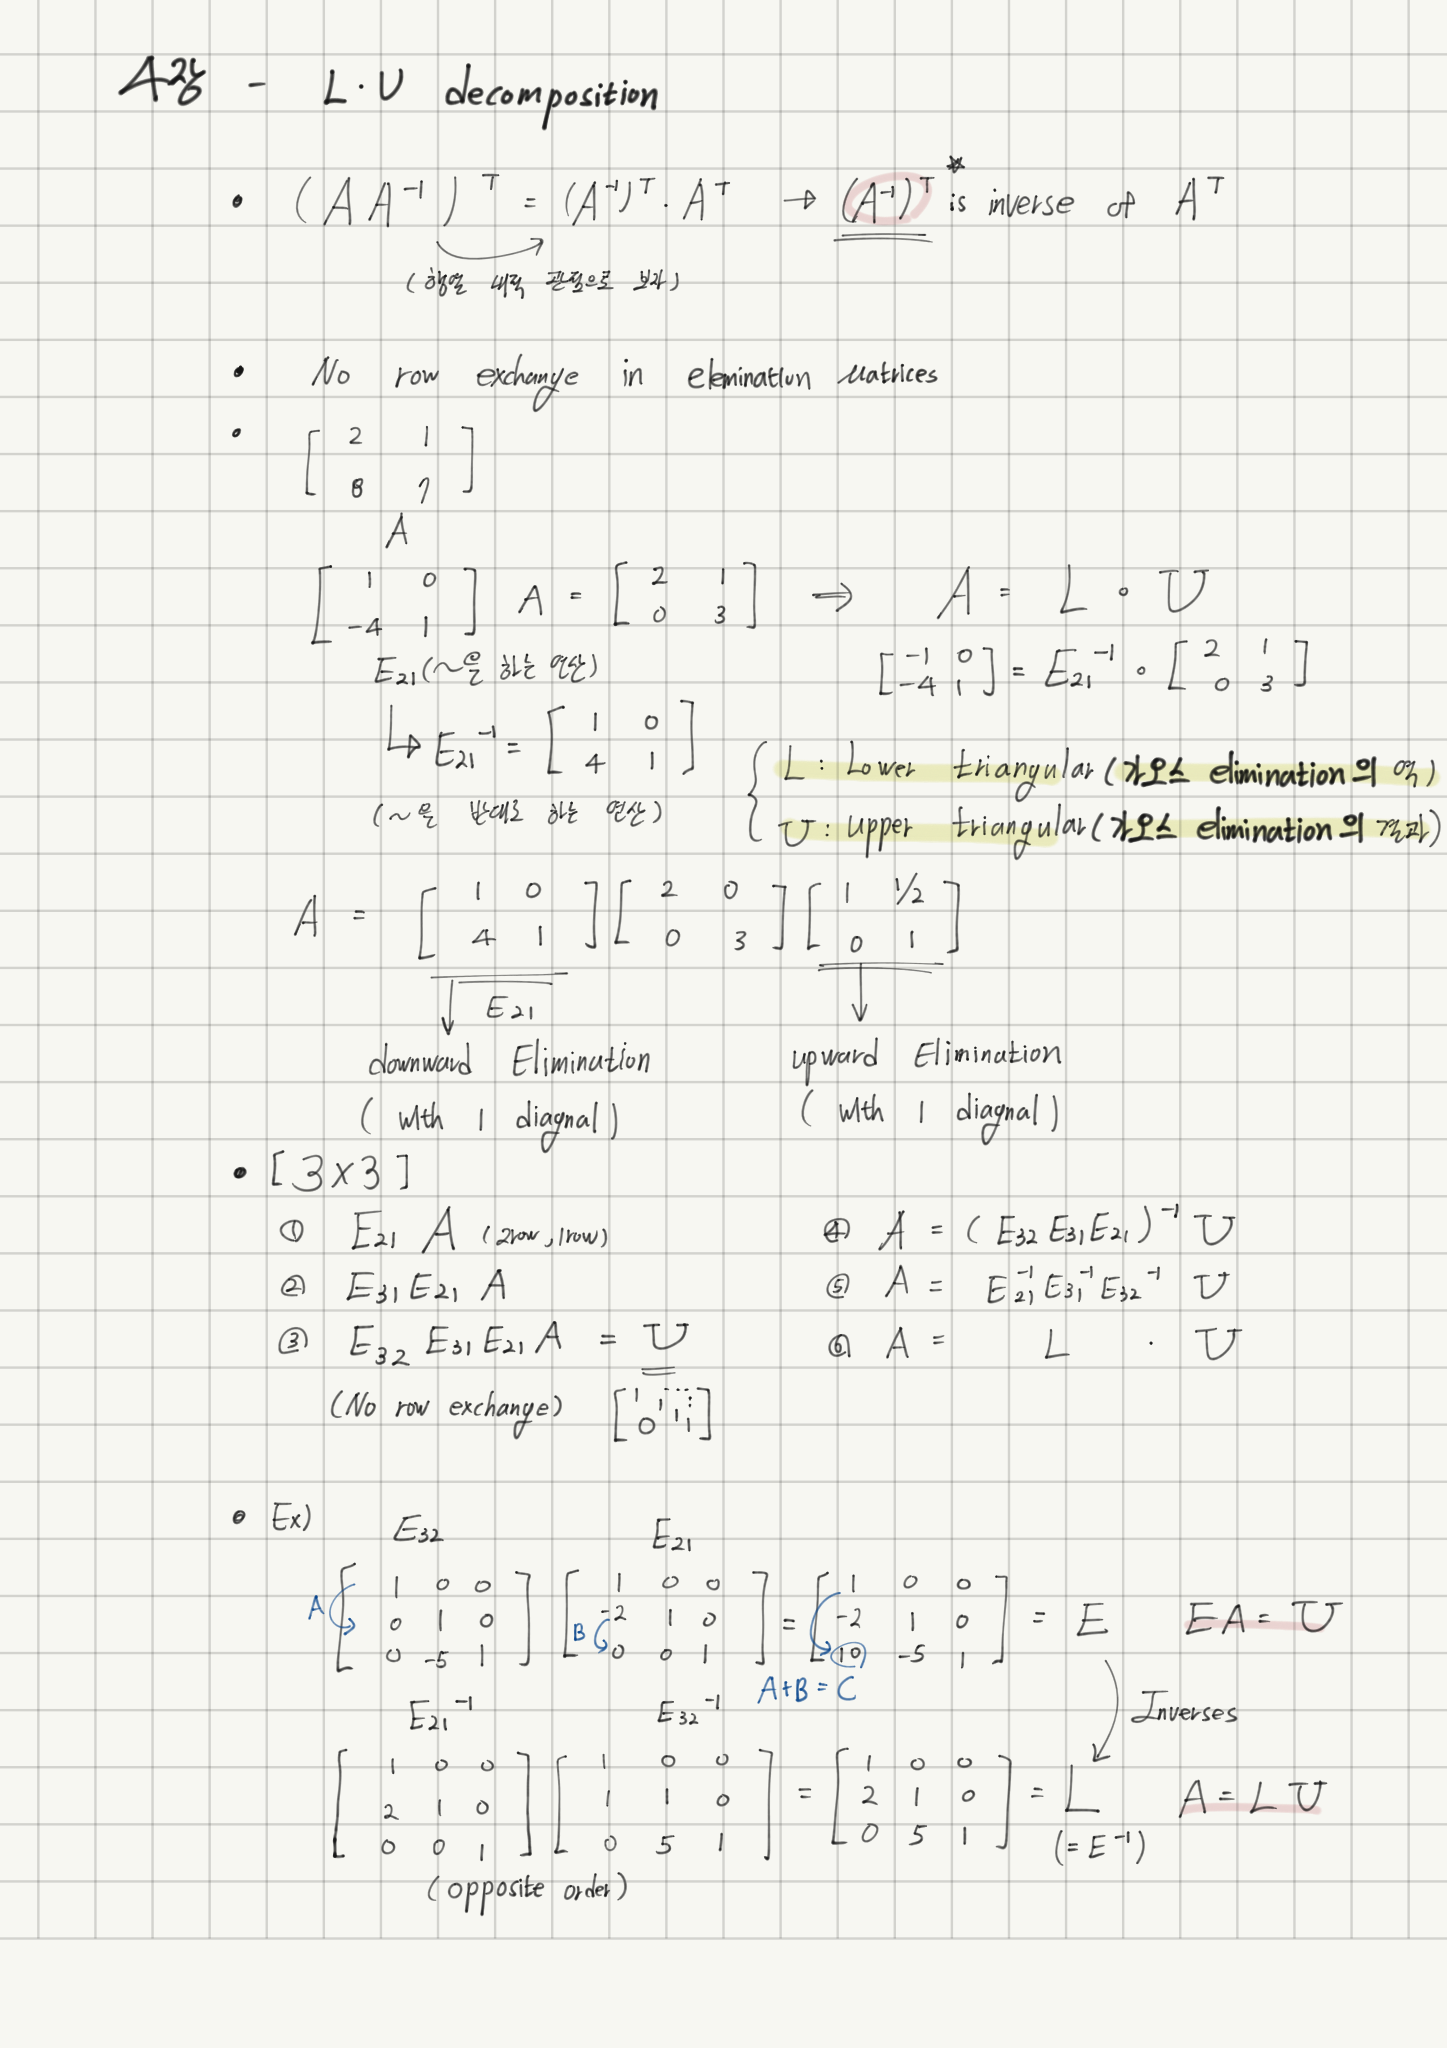 4강 - L·U decomposition
• (A A⁻¹)ᵀ = (A⁻¹)ᵀ · Aᵀ → (A⁻¹)ᵀ is inverse of Aᵀ
(행열 내적 관점으로 보자)
• No row exchange in elemination Matrices
• [ 2 1
8 7 ]
A
[ 1 0
-4 1 ] A = [ 2 1
0 3 ] ⇒ A = L ∘ U
E₂₁ (~을 하는 연산)
[ -1 0
-4 1 ] = E₂₁⁻¹ ∘ [ 2 1
0 3 ]
↳ E₂₁⁻¹ = [ 1 0
4 1 ]
(~을 반대로 하는 연산)
{ L : Lower triangular (가오스 elimination의 역)
U : upper triangular (가오스 elimination의 결과)
A = [ 1 0
4 1 ] [ 2 0
0 3 ] [ 1 1/2
0 1 ]
E₂₁
downward Elimination
(with 1 diagnal)
upward Elimination
(with 1 diagnal)
• [3×3]
① E₂₁ A (2row, 1row)
② E₃₁ E₂₁ A
③ E₃₂ E₃₁ E₂₁ A = U
(No row exchange) [ 1 ⋯ ⋮
1
0 1 1 ]
④ A = (E₃₂ E₃₁ E₂₁)⁻¹ U
⑤ A = E₂₁⁻¹ E₃₁⁻¹ E₃₂⁻¹ U
⑥ A = L · U
• Ex)
E₃₂ E₂₁
[ 1 0 0
0 1 0
0 -5 1 ] [ 1 0 0
-2 1 0
0 0 1 ] = [ 1 0 0
-2 1 0
10 -5 1 ] = E EA = U
A
B
A+B = C
Inverses
E₂₁⁻¹ E₃₂⁻¹
[ 1 0 0
2 1 0
0 0 1 ] [ 1 0 0
1 1 0
0 5 1 ] = [ 1 0 0
2 1 0
0 5 1 ] = L A = LU
(= E⁻¹)
(opposite order)